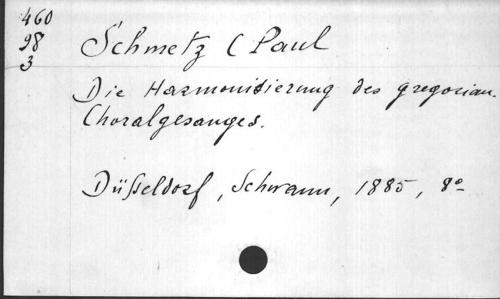 460
98
3
Schmetz (Paul
Die Harmonisierung des gregorian.
Choralgesanges.
Düsseldorf, Schwann, 1885, 8º